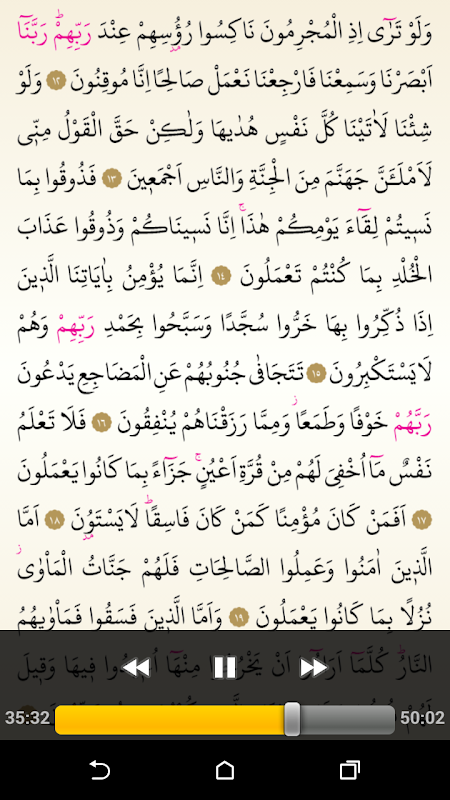 وَلَوْ تَرٰٓى اِذِ الْمُجْرِمُونَ نَاكِسُوا رُؤُ۫سِهِمْ عِنْدَ رَبِّهِمْۜ رَبَّنَٓا
اَبْصَرْنَا وَسَمِعْنَا فَارْجِعْنَا نَعْمَلْ صَالِحًا اِنَّا مُوقِنُونَ ١٢ وَلَوْ
شِئْنَا لَاٰتَيْنَا كُلَّ نَفْسٍ هُدٰيهَا وَلٰكِنْ حَقَّ الْقَوْلُ مِنّ۪ي
لَاَمْلَـَٔنَّ جَهَنَّمَ مِنَ الْجِنَّةِ وَالنَّاسِ اَجْمَع۪ينَ ١٣ فَذُوقُوا بِمَا
نَس۪يتُمْ لِقَٓاءَ يَوْمِكُمْ هٰذَاۚ اِنَّا نَس۪ينَاكُمْ وَذُوقُوا عَذَابَ
الْخُلْدِ بِمَا كُنْتُمْ تَعْمَلُونَ ١٤ اِنَّمَا يُؤْمِنُ بِاٰيَاتِنَا الَّذ۪ينَ
اِذَا ذُكِّرُوا بِهَا خَرُّوا سُجَّدًا وَسَبَّحُوا بِحَمْدِ رَبِّهِمْ وَهُمْ
لَا يَسْتَكْبِرُونَ ١٥ تَتَجَافٰى جُنُوبُهُمْ عَنِ الْمَضَاجِعِ يَدْعُونَ
رَبَّهُمْ خَوْفًا وَطَمَعًاۘ وَمِمَّا رَزَقْنَاهُمْ يُنْفِقُونَ ١٦ فَلَا تَعْلَمُ
نَفْسٌ مَٓا اُخْفِيَ لَهُمْ مِنْ قُرَّةِ اَعْيُنٍۚ جَزَٓاءً بِمَا كَانُوا يَعْمَلُونَ
١٧ اَفَمَنْ كَانَ مُؤْمِنًا كَمَنْ كَانَ فَاسِقًاۜ لَا يَسْتَوُ۫نَ ١٨ اَمَّا
الَّذ۪ينَ اٰمَنُوا وَعَمِلُوا الصَّالِحَاتِ فَلَهُمْ جَنَّاتُ الْمَأْوٰىۘ
نُزُلًا بِمَا كَانُوا يَعْمَلُونَ ١٩ وَاَمَّا الَّذ۪ينَ فَسَقُوا فَمَأْوٰيهُمُ
النَّارُۜ كُلَّمَٓا اَنْ مِنْهَٓا ف۪يهَا وَق۪يلَ
35:32 50:02